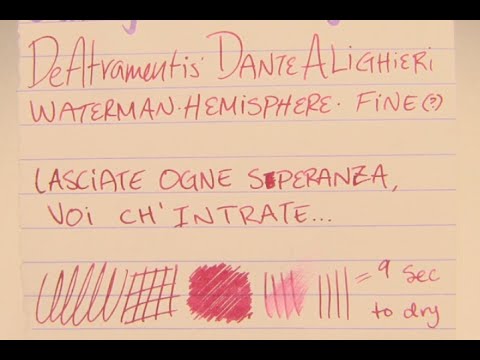 DeAtramentis DANTE ALIGHIERI
WATERMAN · HEMISPHERE · FINE (?)
LASCIATE OGNE SPERANZA,
VOI CH'INTRATE...
= 9 sec
to dry